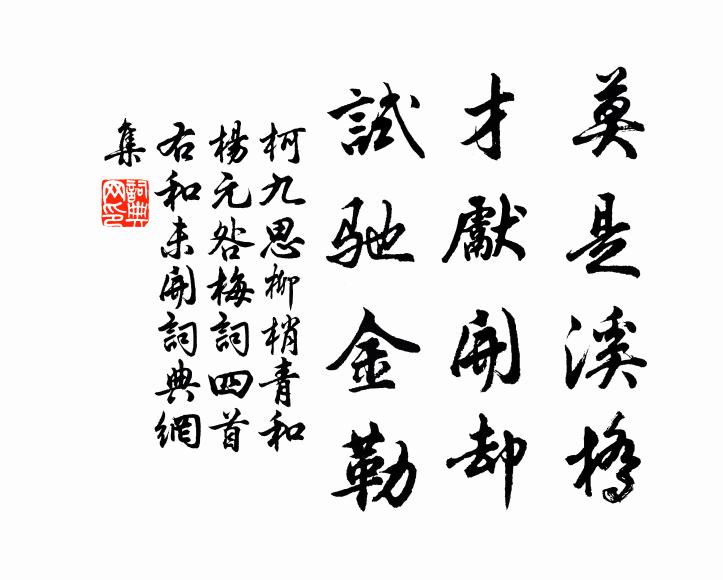 莫是溪橋
才獻開却
試馳金勒
柯九思柳梢青和
楊元咎梅詞四首
右和未開詞典網
集
詞典网印